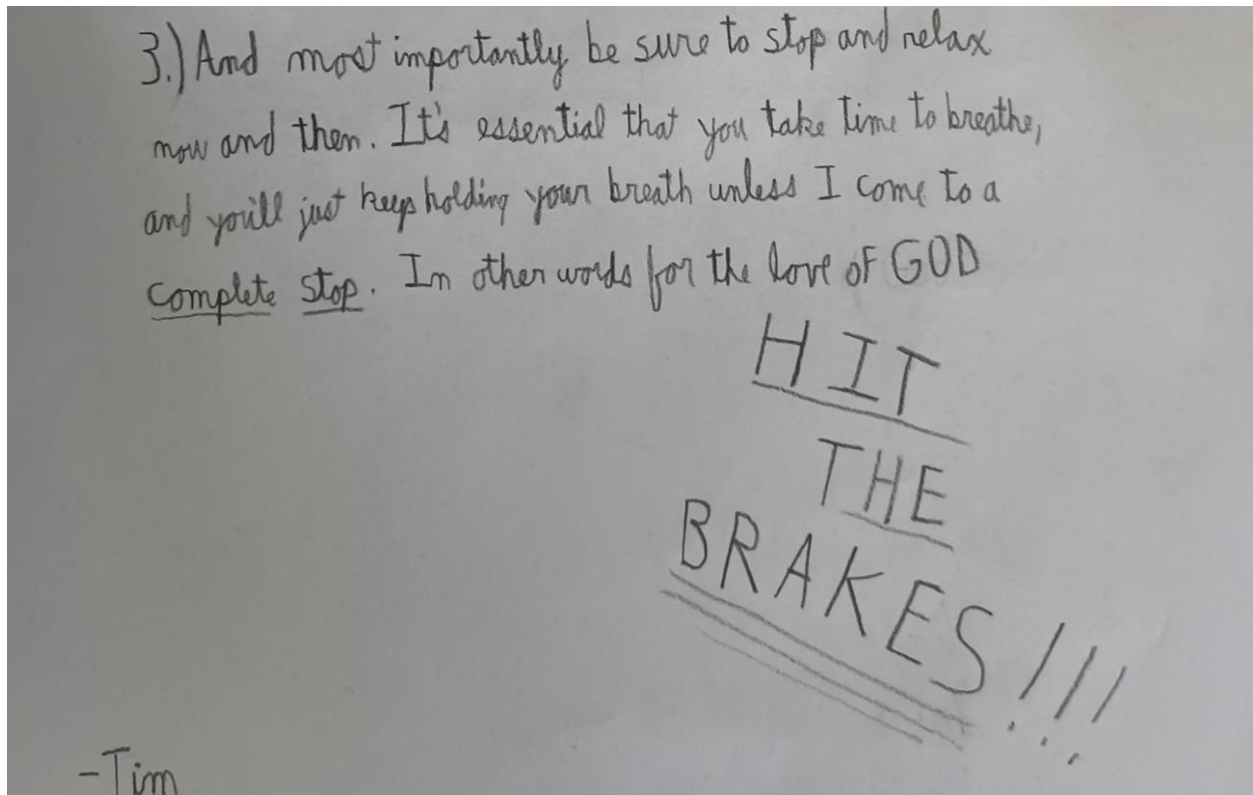 3.) And most importantly be sure to stop and relax
now and then. It's essential that you take time to breathe,
and you'll just keep holding your breath unless I come to a
complete stop. In other words for the love of GOD
HIT
THE
BRAKES!!!
-Tim